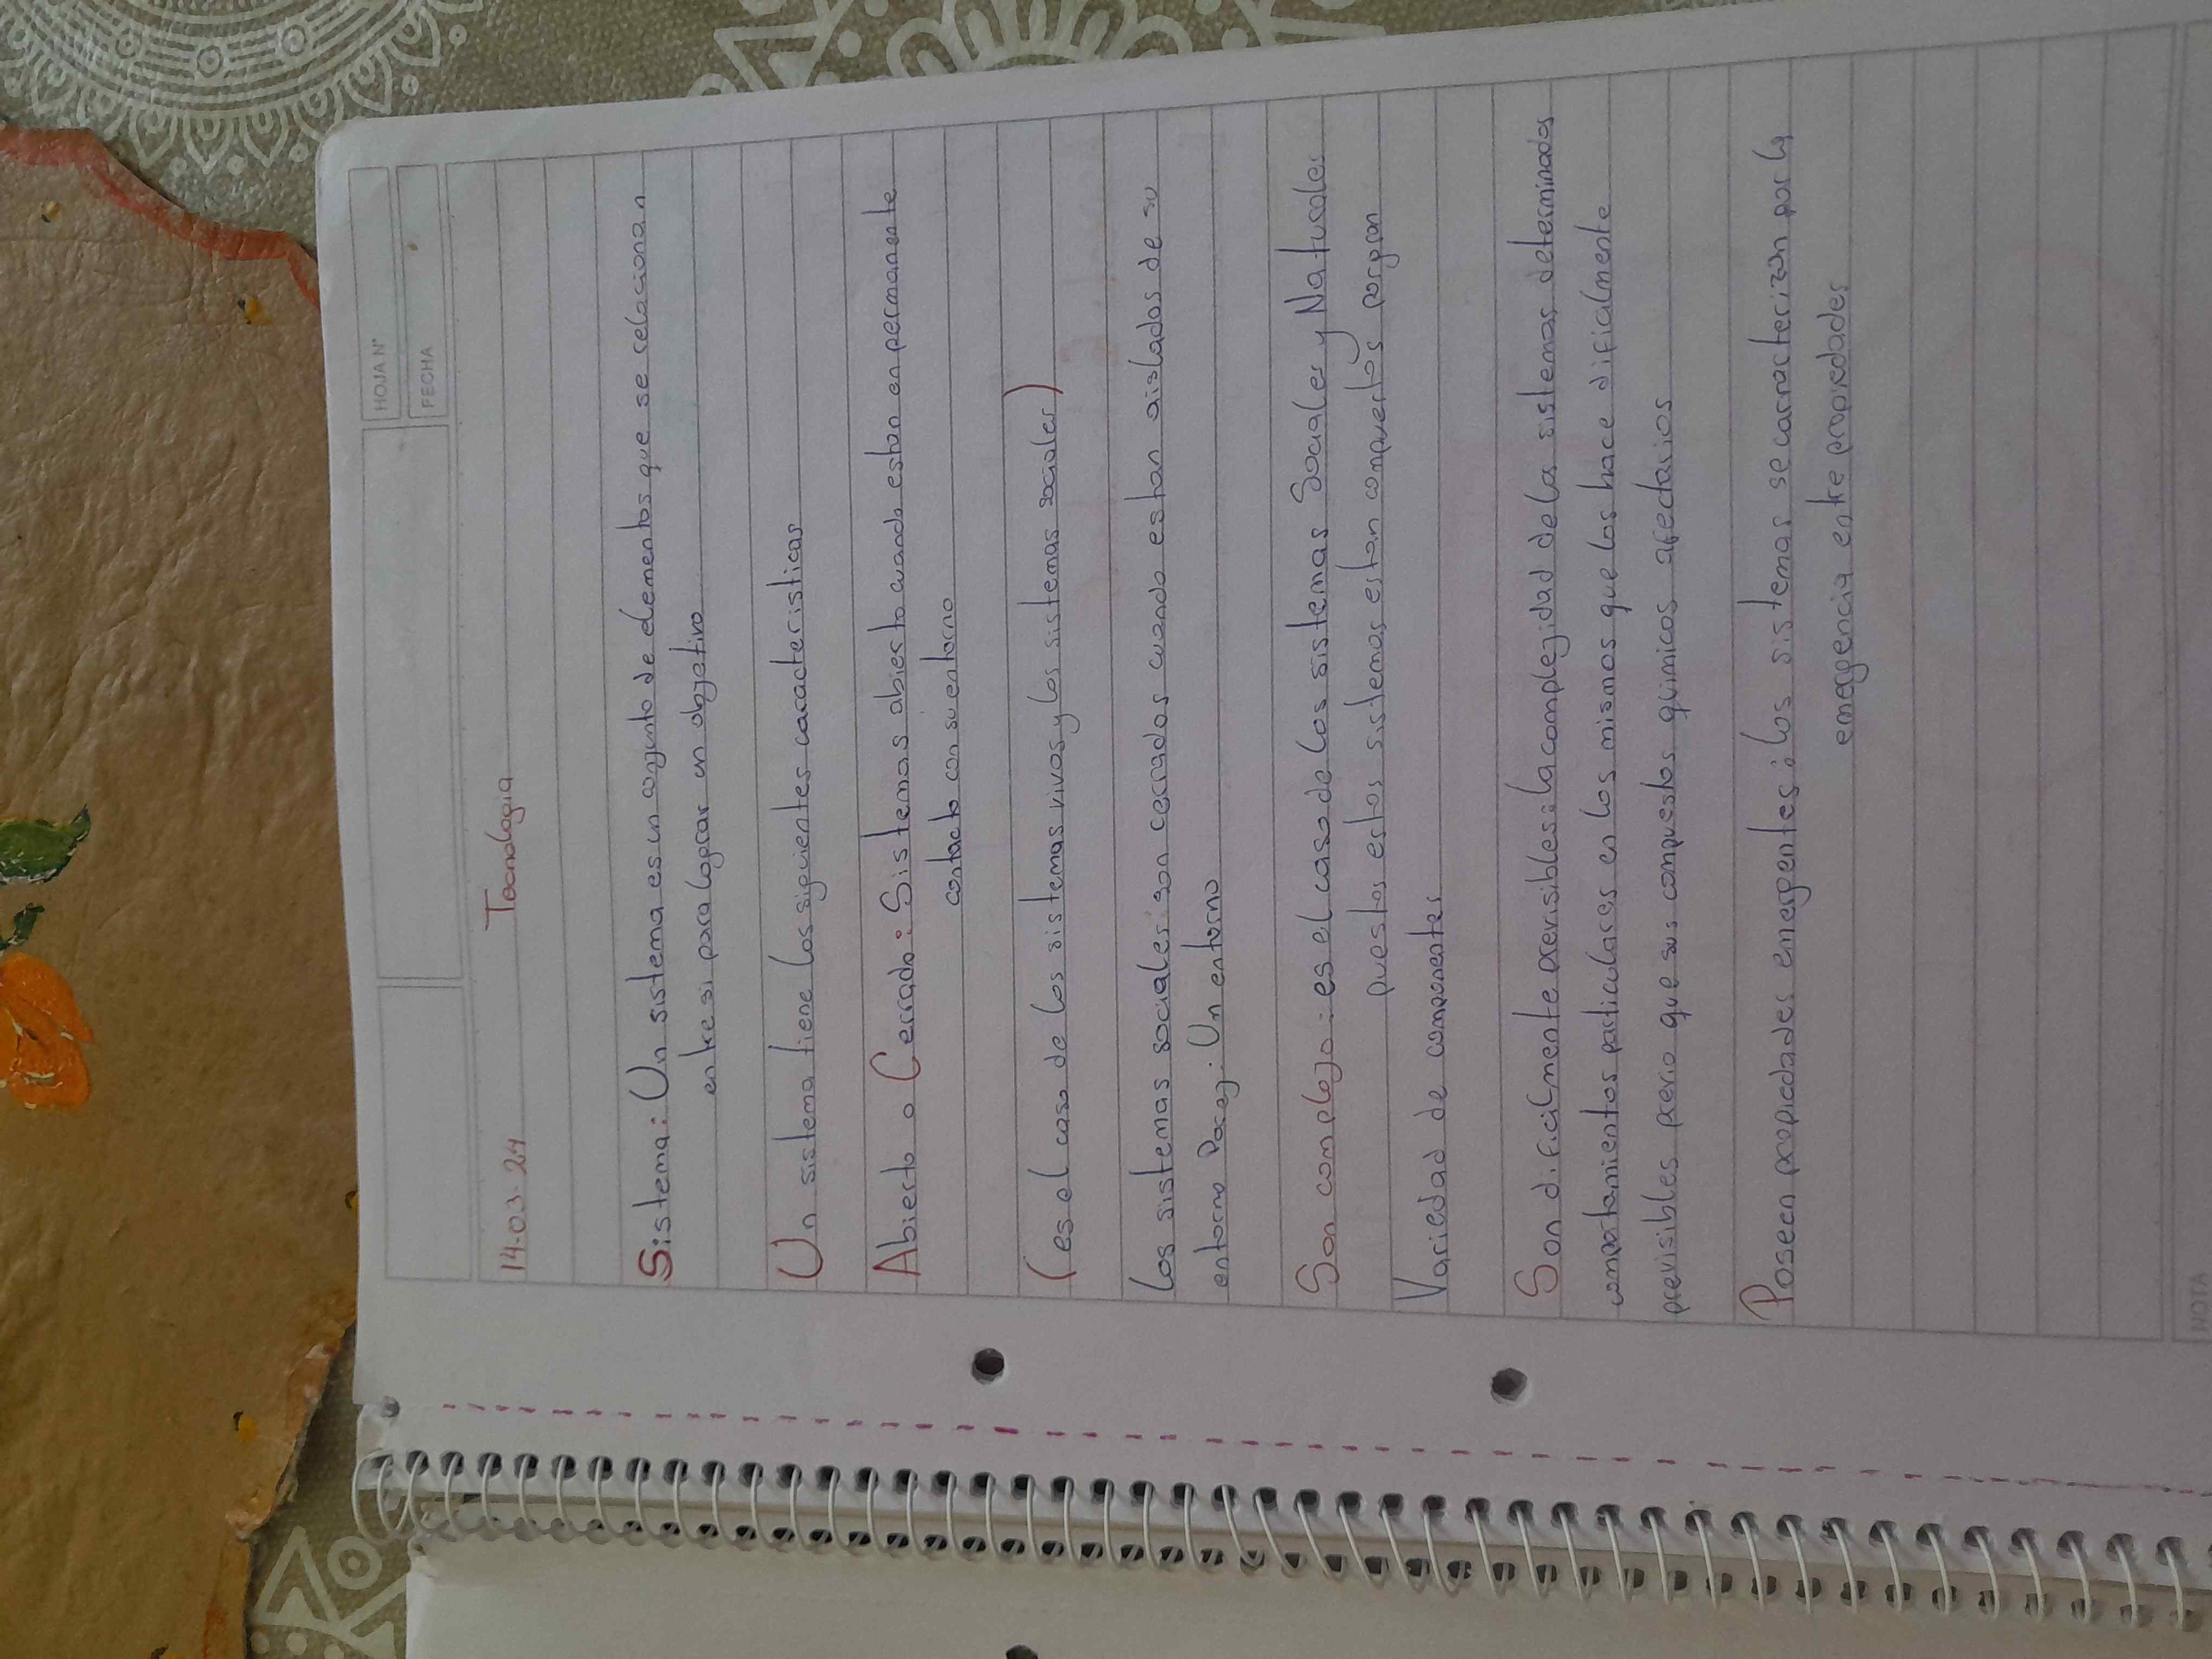 HOJA N°
FECHA
14-03-24 Tecnologia
Sistema: Un sistema es un conjunto de elementos que se relacionan
entre si para lograr un objetivo
Un sistema tiene los siguientes caracteristicas
Abierto o Cerrado: Sistemas abierto cuando estan en permanente
contacto con su entorno
(es el caso de los sistemas vivos y los sistemas sociales)
Los sistemas sociales: son cerrados cuando estan aislados de su
entorno Por ej: Un entorno
Son complejo: es el caso de los sistemas Sociales y Naturales
puestos estos sistemas estan compuertos porgran
Variedad de componentes
Son dificilmente previsibles: la complejidad de las sistemas determinados
comportamientos particulares en los mismos que los hace dificialmente
previsibles previo que sus compuestos químicos afectarios
Poseen propiedades emergentes: los sistemas se carracterizan por la
emergencia entre propiedades
NOTA